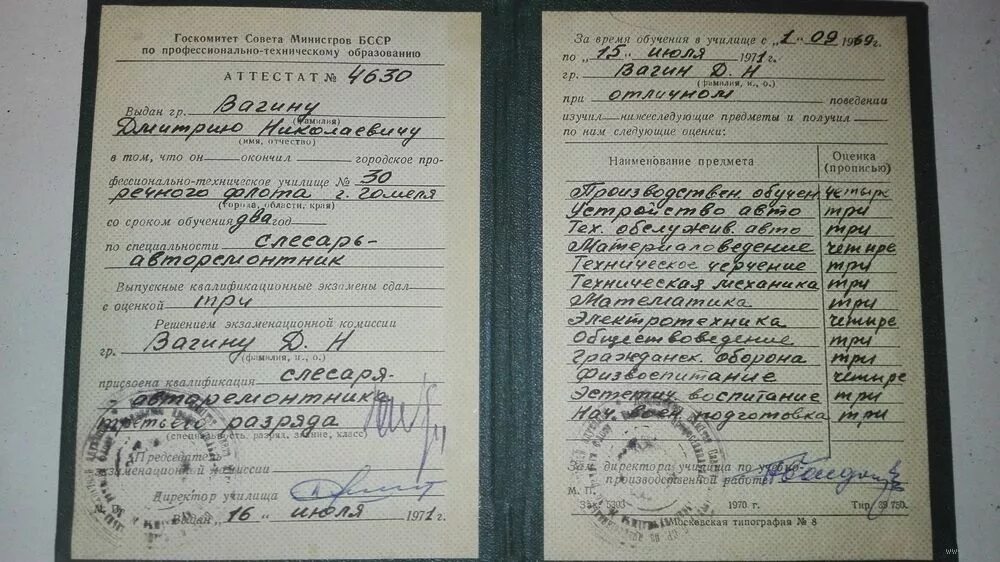 Госкомитет Совета Министров БССР
по профессионально-техническому образованию
АТТЕСТАТ № 4630
Выдан гр. Вагину
(фамилия)
Дмитрию Николаевичу
(имя, отчество)
в том, что он окончил городское про-
фессионально-техническое училище № 30
речного флота г. Гомеля
(города, области, края)
со сроком обучения два год
по специальности слесарь-
авторемонтник
Выпускные квалификационные экзамены сдал
с оценкой три
Решением экзаменационной комиссии
гр. Вагину Д. Н
(фамилия, и., о.)
присвоена квалификация слесаря-
автаремонтника
третьего разряда
(специальность, разряд, звание, класс)
Председатель
экзаменационной комиссии
Директор училища
Выдан „16„ июля 1971г.
За время обучения в училище с „1„ 09 1969г.
по „15„ июля 1971г.
гр. Вагин Д. Н
(фамилия, и., о.)
при отличном поведении
изучил нижеследующие предметы и получил
по ним следующие оценки:
Наименование предмета Оценка (прописью)
Производствен. обучен четыре
Устройство авто три
Тех. обслужив. авто три
Материаловедение четыре
Техническое черчение три
Техническая механика три
Математика три
Электротехника четыре
Обществоведение три
Гражданск. оборона три
Физвоспитание четыре
Эстетич. воспитание три
Нач. воен. подготовка три
Зам. директора училища по учебно-
производственной работе
М. П.
Зак. 5303 1970 г. Тир. 39 750.
Московская типография № 8